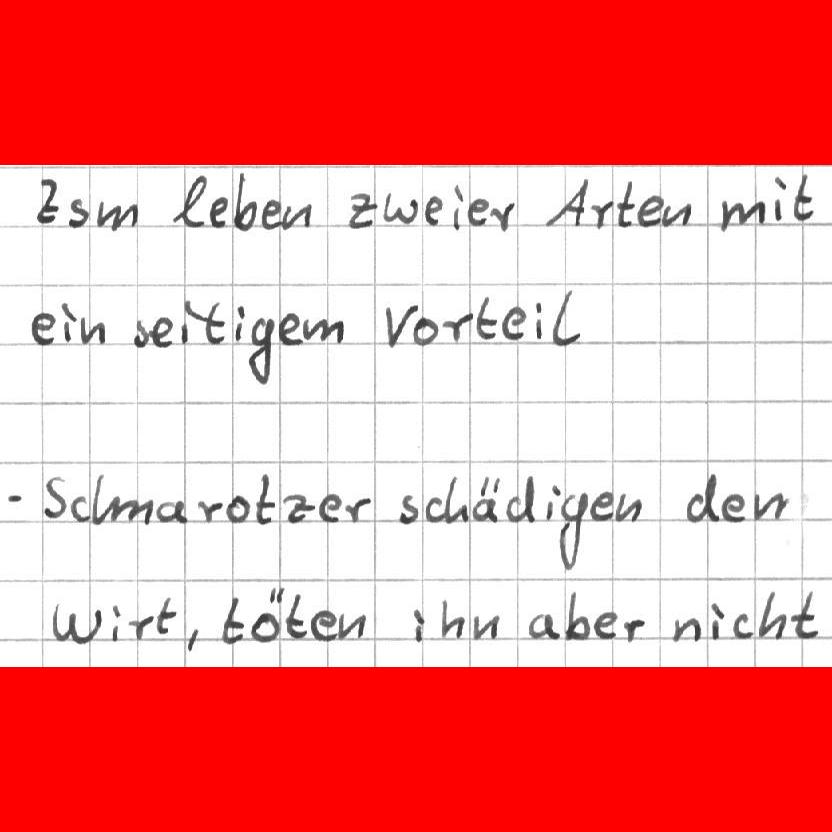 Zsm leben zweier Arten mit
ein seitigem Vorteil
- Schmarotzer schädigen den
Wirt, töten ihn aber nicht